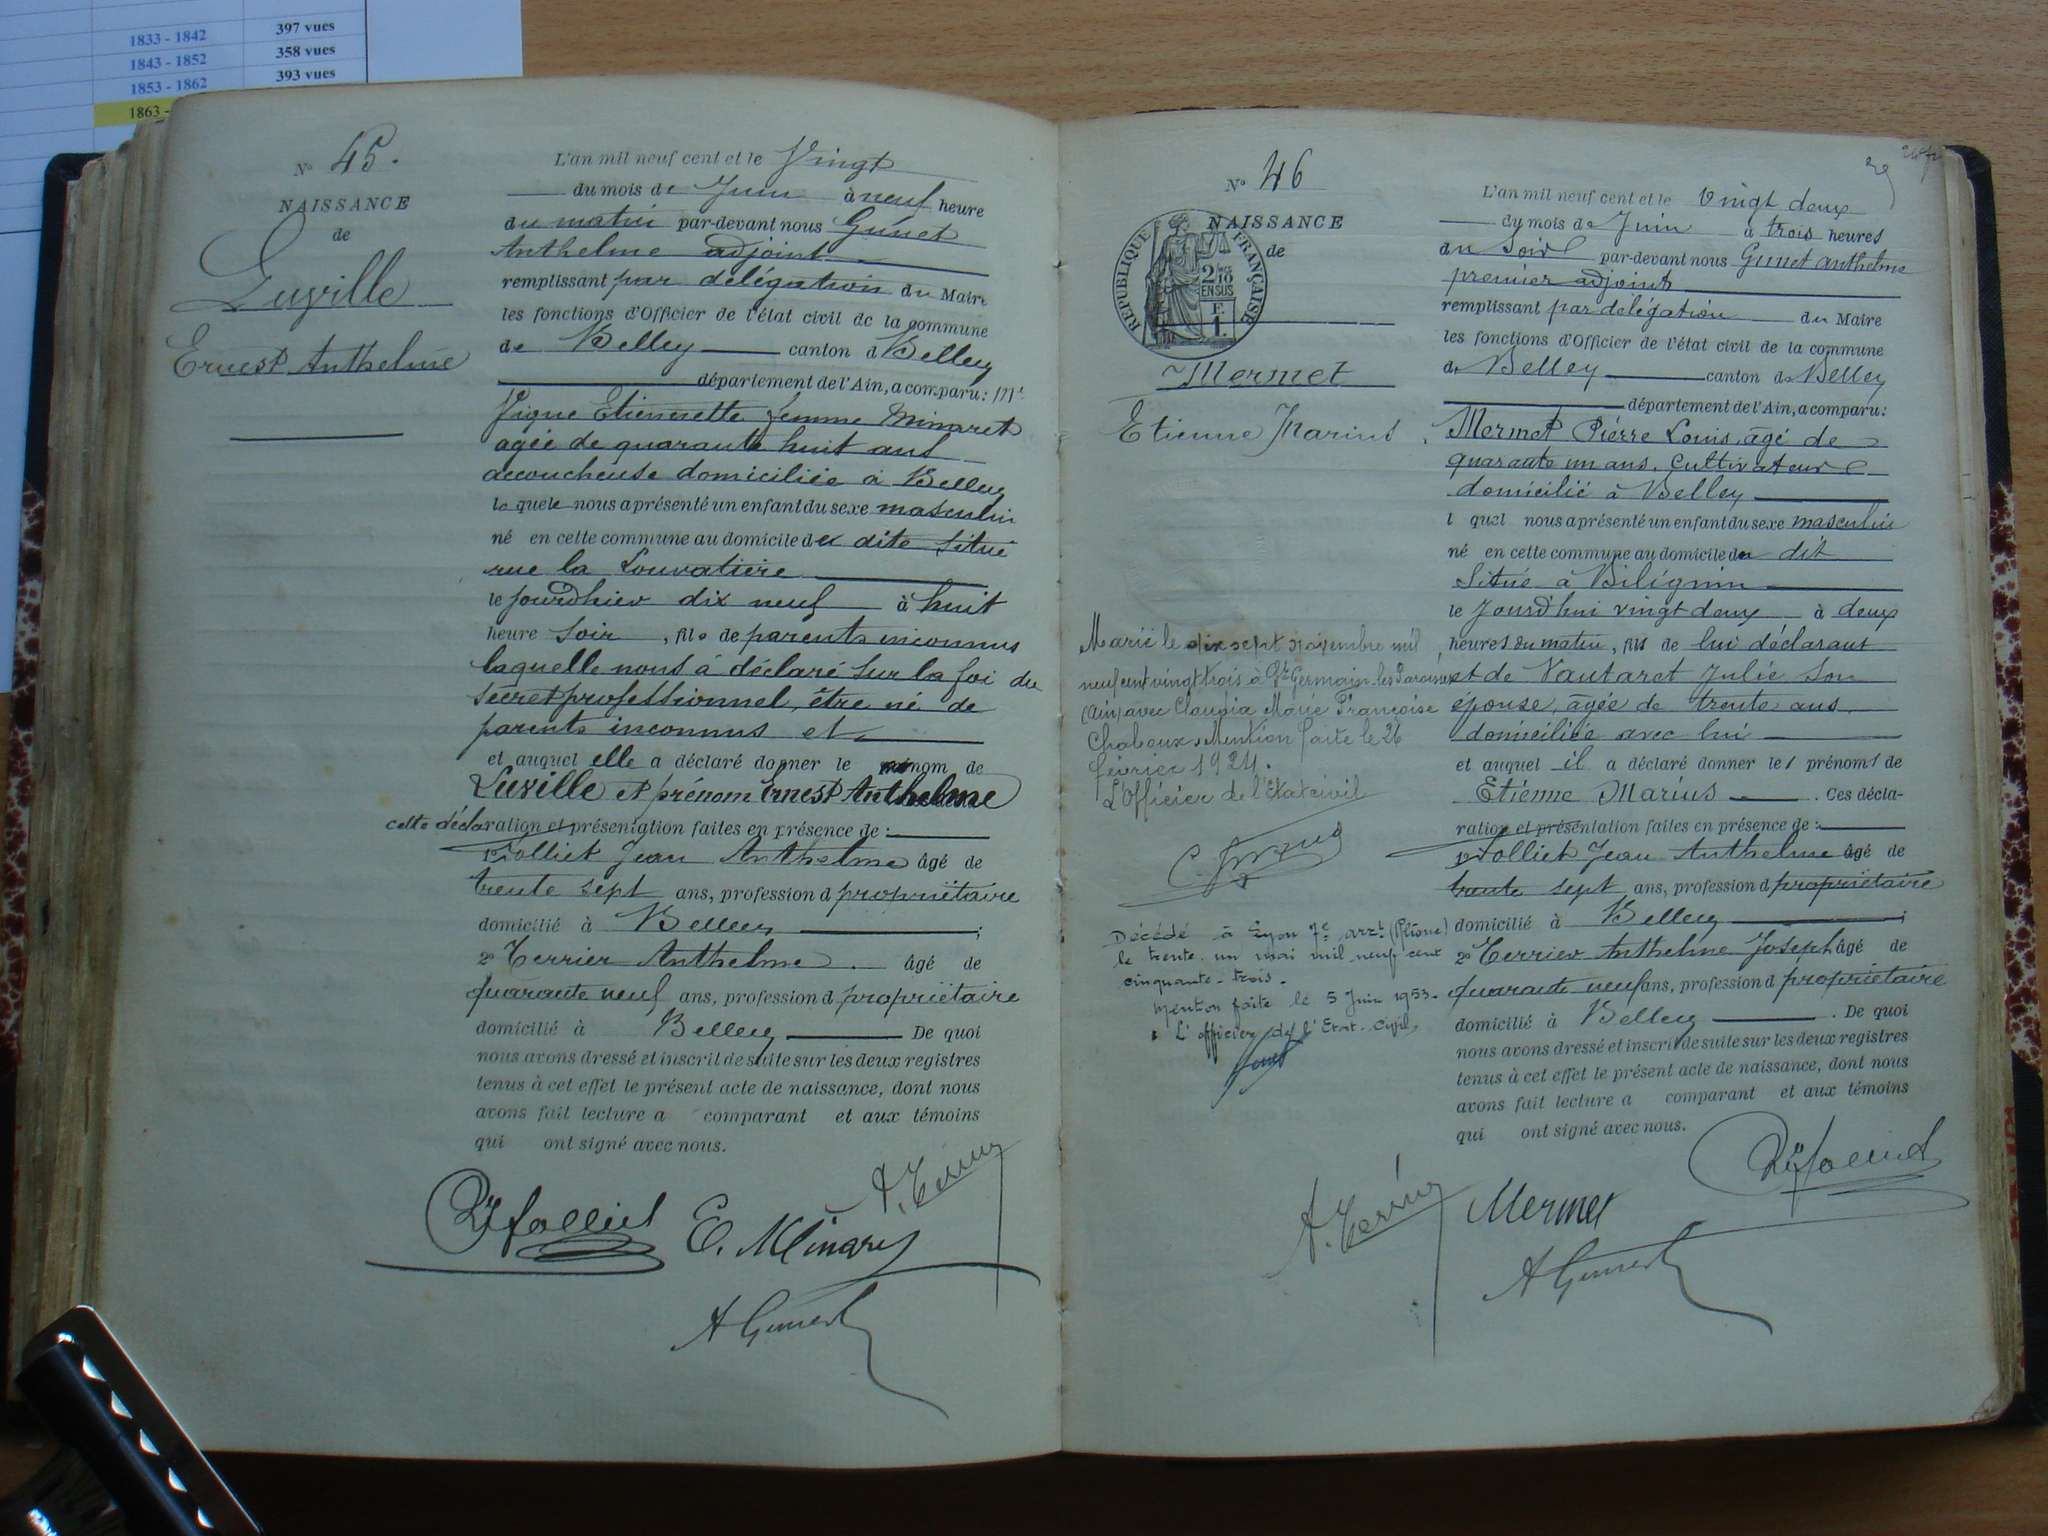 1833 - 1842 397 vues
1843 - 1852 358 vues
1853 - 1862 393 vues
1863 -
N° 45.
NAISSANCE
de
Luville
Ernest Anthelme
L'an mil neuf cent et le Vingt
du mois de Juin à neuf heure
du matin par-devant nous Gunet
Anthelme adjoint
remplissant par délégation du Maire
les fonctions d'Officier de l'état civil de la commune
de Belley canton d Belley
département de l'Ain, a comparu: Me
Pigne Etiennette femme Minaret
agée de quarante huit ans
accoucheuse domiciliée à Belley
la quele nous a présenté un enfant du sexe masculin
né en cette commune au domicile de la dite situé
rue la Louvatière
le jourdhier dix neuf à huit
heure soir, fils de parents inconnus
laquelle nous à déclaré sur la foi du
secret professionnel, être né de
parents inconnus et
et auquel elle a déclaré donner le nom de
Luville et prénom Ernest Anthelme
cette déclaration et présentation faites en présence de :
1° Folliet Jean Anthelme âgé de
trente sept ans, profession d propriétaire
domicilié à Belley ;
2° Terrier Anthelme âgé de
quarante neuf ans, profession d propriétaire
domicilié à Belley De quoi
nous avons dressé et inscrit de suite sur les deux registres
tenus à cet effet le présent acte de naissance, dont nous
avons fait lecture a comparant et aux témoins
qui ont signé avec nous.
Folliet E. Minaret A. Terrier
A Gunet
N° 46
NAISSANCE
de
RÉPUBLIQUE FRANÇAISE
2/10
EN SUS
F.
1.
Mermet
Etienne Marius
Marié le dix sept novembre mil
neuf cent vingt trois à St Germain-les-Paroisses
(Ain) avec Claudia Marie Françoise
Chaboux. Mention faite le 26
février 1924.
L'Officier de l'Etat civil
Décédé à Lyon 7e arrt (Rhône)
le trente un mai mil neuf cent
cinquante-trois.
Mention faite le 5 Juin 1953.
L'officier de l'Etat-Civil,
29
L'an mil neuf cent et le vingt deux
du mois de Juin à trois heures
du soir par-devant nous Gunet Anthelme
premier adjoint
remplissant par délégation du Maire
les fonctions d'Officier de l'état civil de la commune
de Belley canton de Belley
département de l'Ain, a comparu:
Mermet Pierre Louis, âgé de
quarante un ans, cultivateur
domicilié à Belley
l quel nous a présenté un enfant du sexe masculin
né en cette commune au domicile du dit
situé à Bilignin
le jourd'hui vingt deux à deux
heures du matin, fils de lui déclarant
et de Vautaret Julie son
épouse, âgée de trente ans
domiciliée avec lui
et auquel il a déclaré donner les prénoms de
Etienne Marius . Ces décla-
ration et présentation faites en présence de :
1° Folliet Jean Anthelme âgé de
trente sept ans, profession d propriétaire
domicilié à Belley ;
2° Terrier Anthelme Joseph âgé de
quarante neuf ans, profession d propriétaire
domicilié à Belley . De quoi
nous avons dressé et inscrit de suite sur les deux registres
tenus à cet effet le présent acte de naissance, dont nous
avons fait lecture a comparant et aux témoins
qui ont signé avec nous.
A. Terrier Mermet Folliet
A Gunet